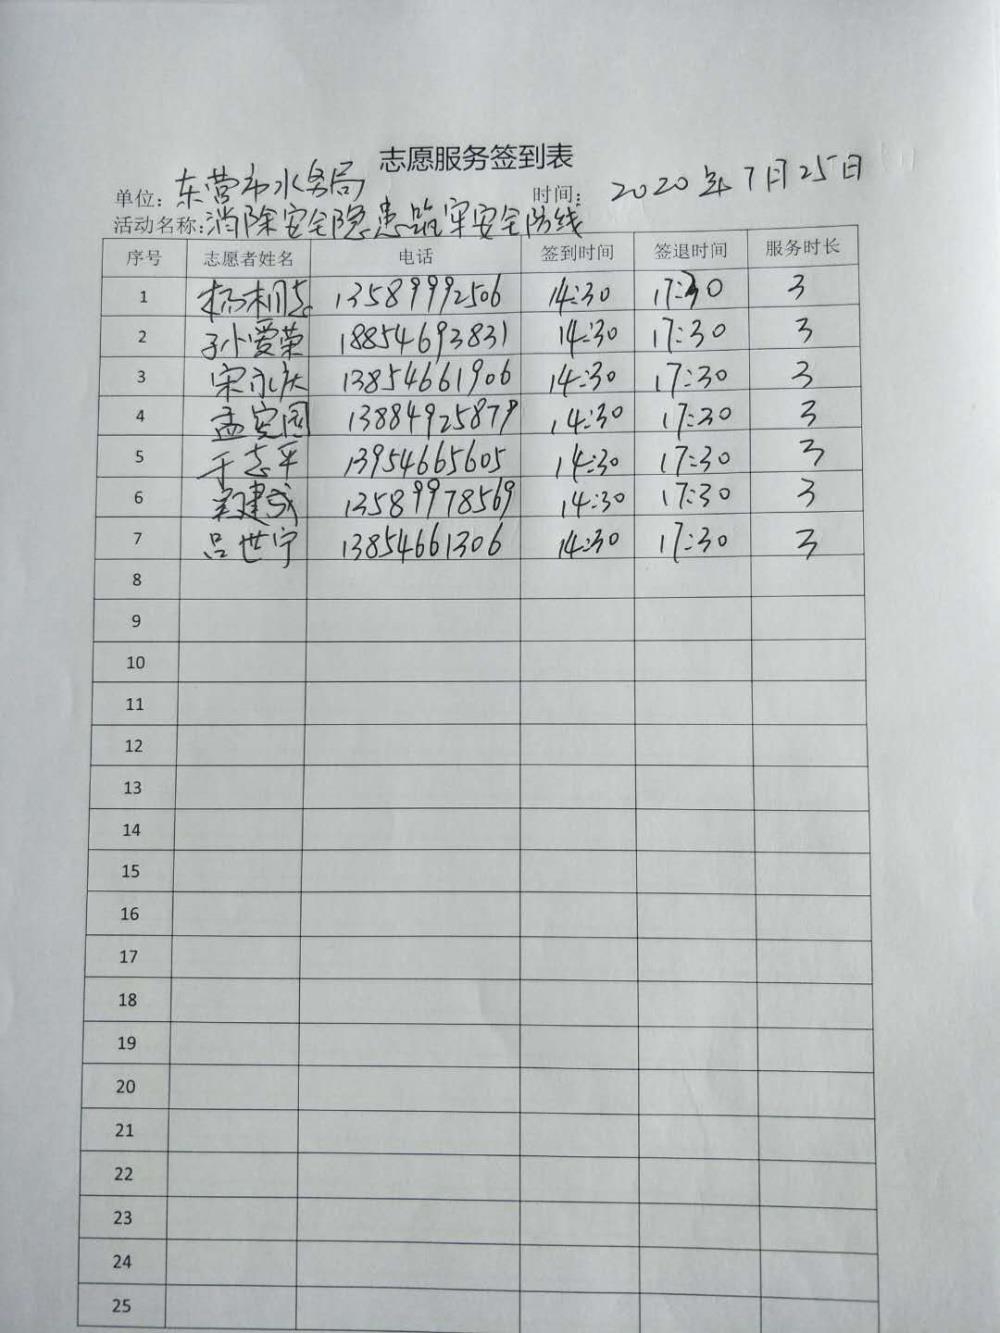 志愿服务签到表
单位: 东营市水务局 时间: 2020年7月25日
活动名称: 消除安全隐患 牢安全防线
序号 志愿者姓名 电话 签到时间 签退时间 服务时长
1 13589992506 14:30 17:30 3
2 孙爱荣 18854693831 14:30 17:30 3
3 宋永庆 13854661906 14:30 17:30 3
4 孟安国 13884925879 14:30 17:30 3
5 于志平 13954665605 14:30 17:30 3
6 吴建武 13589978569 14:30 17:30 3
7 吕世宁 13854661306 14:30 17:30 3
8
9
10
11
12
13
14
15
16
17
18
19
20
21
22
23
24
25